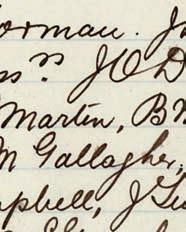 orman. J
ss. J O D
Martin, B M
M Gallagher,
pbell, J